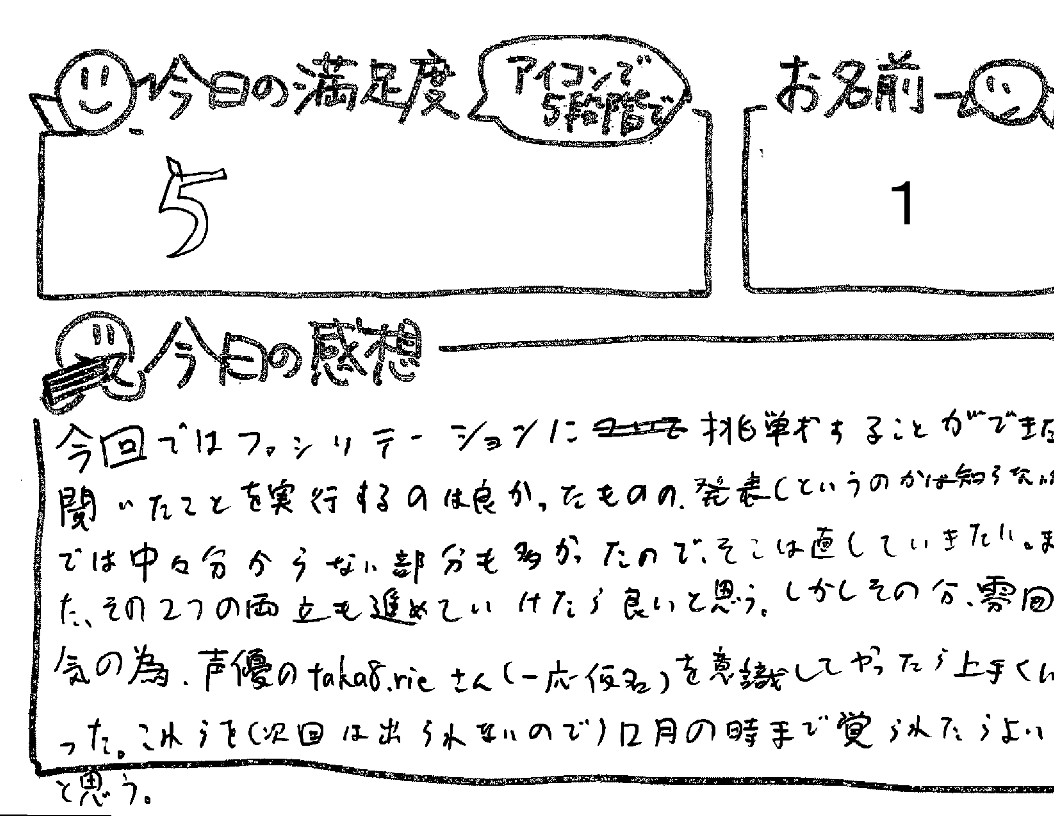 今日の満足度
アイコンで
5段階で
お名前
5
1
今日の感想
今回ではファシリテーションに 挑戦することができた
聞いたことを実行するのは良かったものの、発表(というのかは知らない
では中々分からない部分も多かったので、そこは直していきたい。ま
た、その2つの両立も進めていけたら良いと思う。しかしその分、雰囲
気の為、声優のtaka8.rieさん(一応仮名)を意識してやったら上手くい
った。これらを(次回は出られないので)12月の時まで覚えられたらよい
と思う。